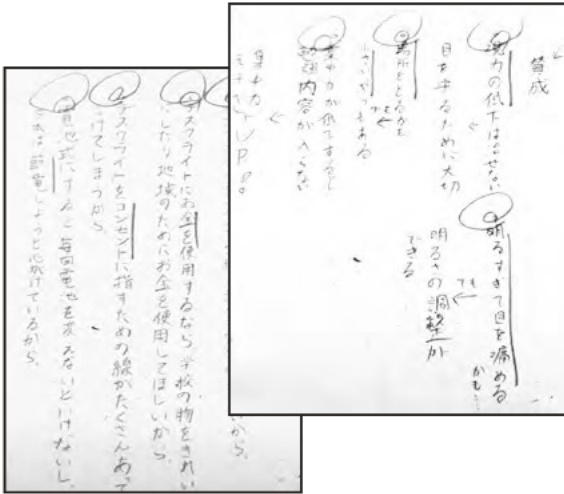 賛成
視力の低下は治せない
↓
目を守るために大切
場所をとるかも
↓でも
小さいやつもある
集中力が低下すると
勉強内容が入らない
↓
集中力
UP。
明るすぎて目を痛める
かも…
↓でも
明るさの調整が
できる
から。
デスクライトにお金を使用するなら、学校の物をきれい
にしたり地域のためにお金を使用してほしいから。
デスクライトをコンセントに指すための線がたくさんあって
してしまうから。
電池式にすると毎回電池を変えないといけないし、
節電しようと心がけているから。